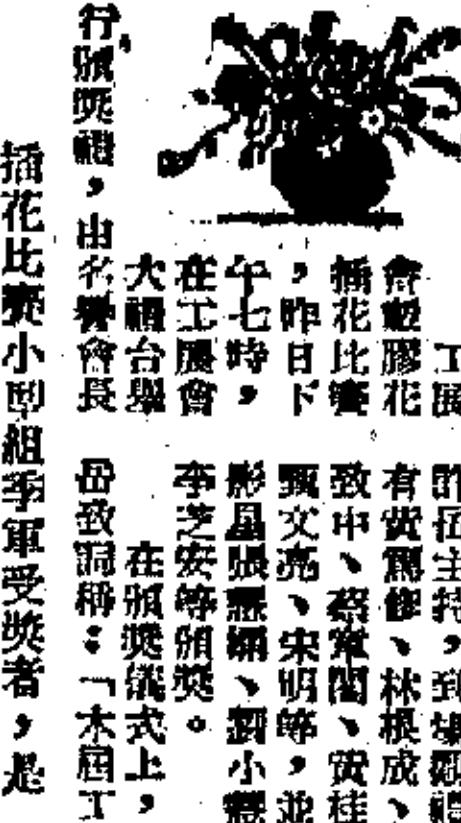 工展
會塑膠花
插花比賽
，昨日下
午七時，
在工展會
大禮台舉
行頒獎禮，由名譽會長
主持，到場觀禮
有黃篤修、林根成、
致中、蔡章閣、黃桂
甄文亮、宋明等，並
影星張慧嫻、劉小
李芝安等頒獎。
在頒獎儀式上，
岳致詞稱：「本屆工
插花比賽小型組季軍受獎者，是